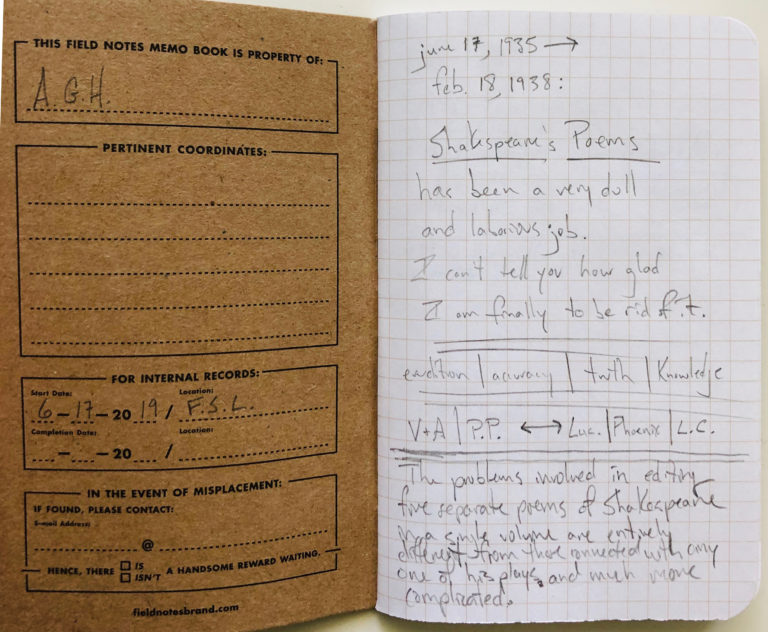 THIS FIELD NOTES MEMO BOOK IS PROPERTY OF:
A.G.H.
PERTINENT COORDINATES:
FOR INTERNAL RECORDS:
Start Date: Location:
6-17-2019 / F.S.L.
Completion Date: Location:
- -20 /
IN THE EVENT OF MISPLACEMENT:
IF FOUND, PLEASE CONTACT:
E-mail Address:
@
HENCE, THERE ☐ IS ☐ ISN'T A HANDSOME REWARD WAITING.
fieldnotesbrand.com
june 17, 1935 →
feb. 18, 1938:
Shakespeare's Poems
has been a very dull
and laborious job.
I can't tell you how glad
I am finally to be rid of it.
erudition | accuracy | truth | Knowledge
V+A | P.P. ↔ Luc. | Phoenix | L.C.
The problems involved in editing
five separate poems of Shakespeare
in a single volume are entirely
different from those connected with any
one of his plays, and much more
complicated.